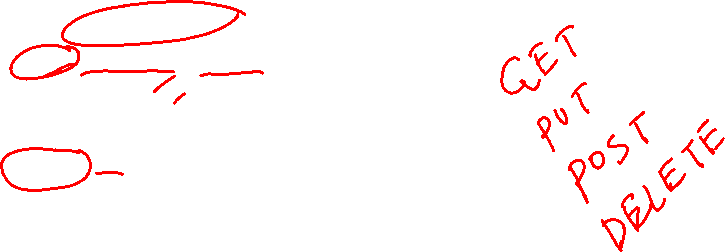 GET
PUT
POST
DELETE